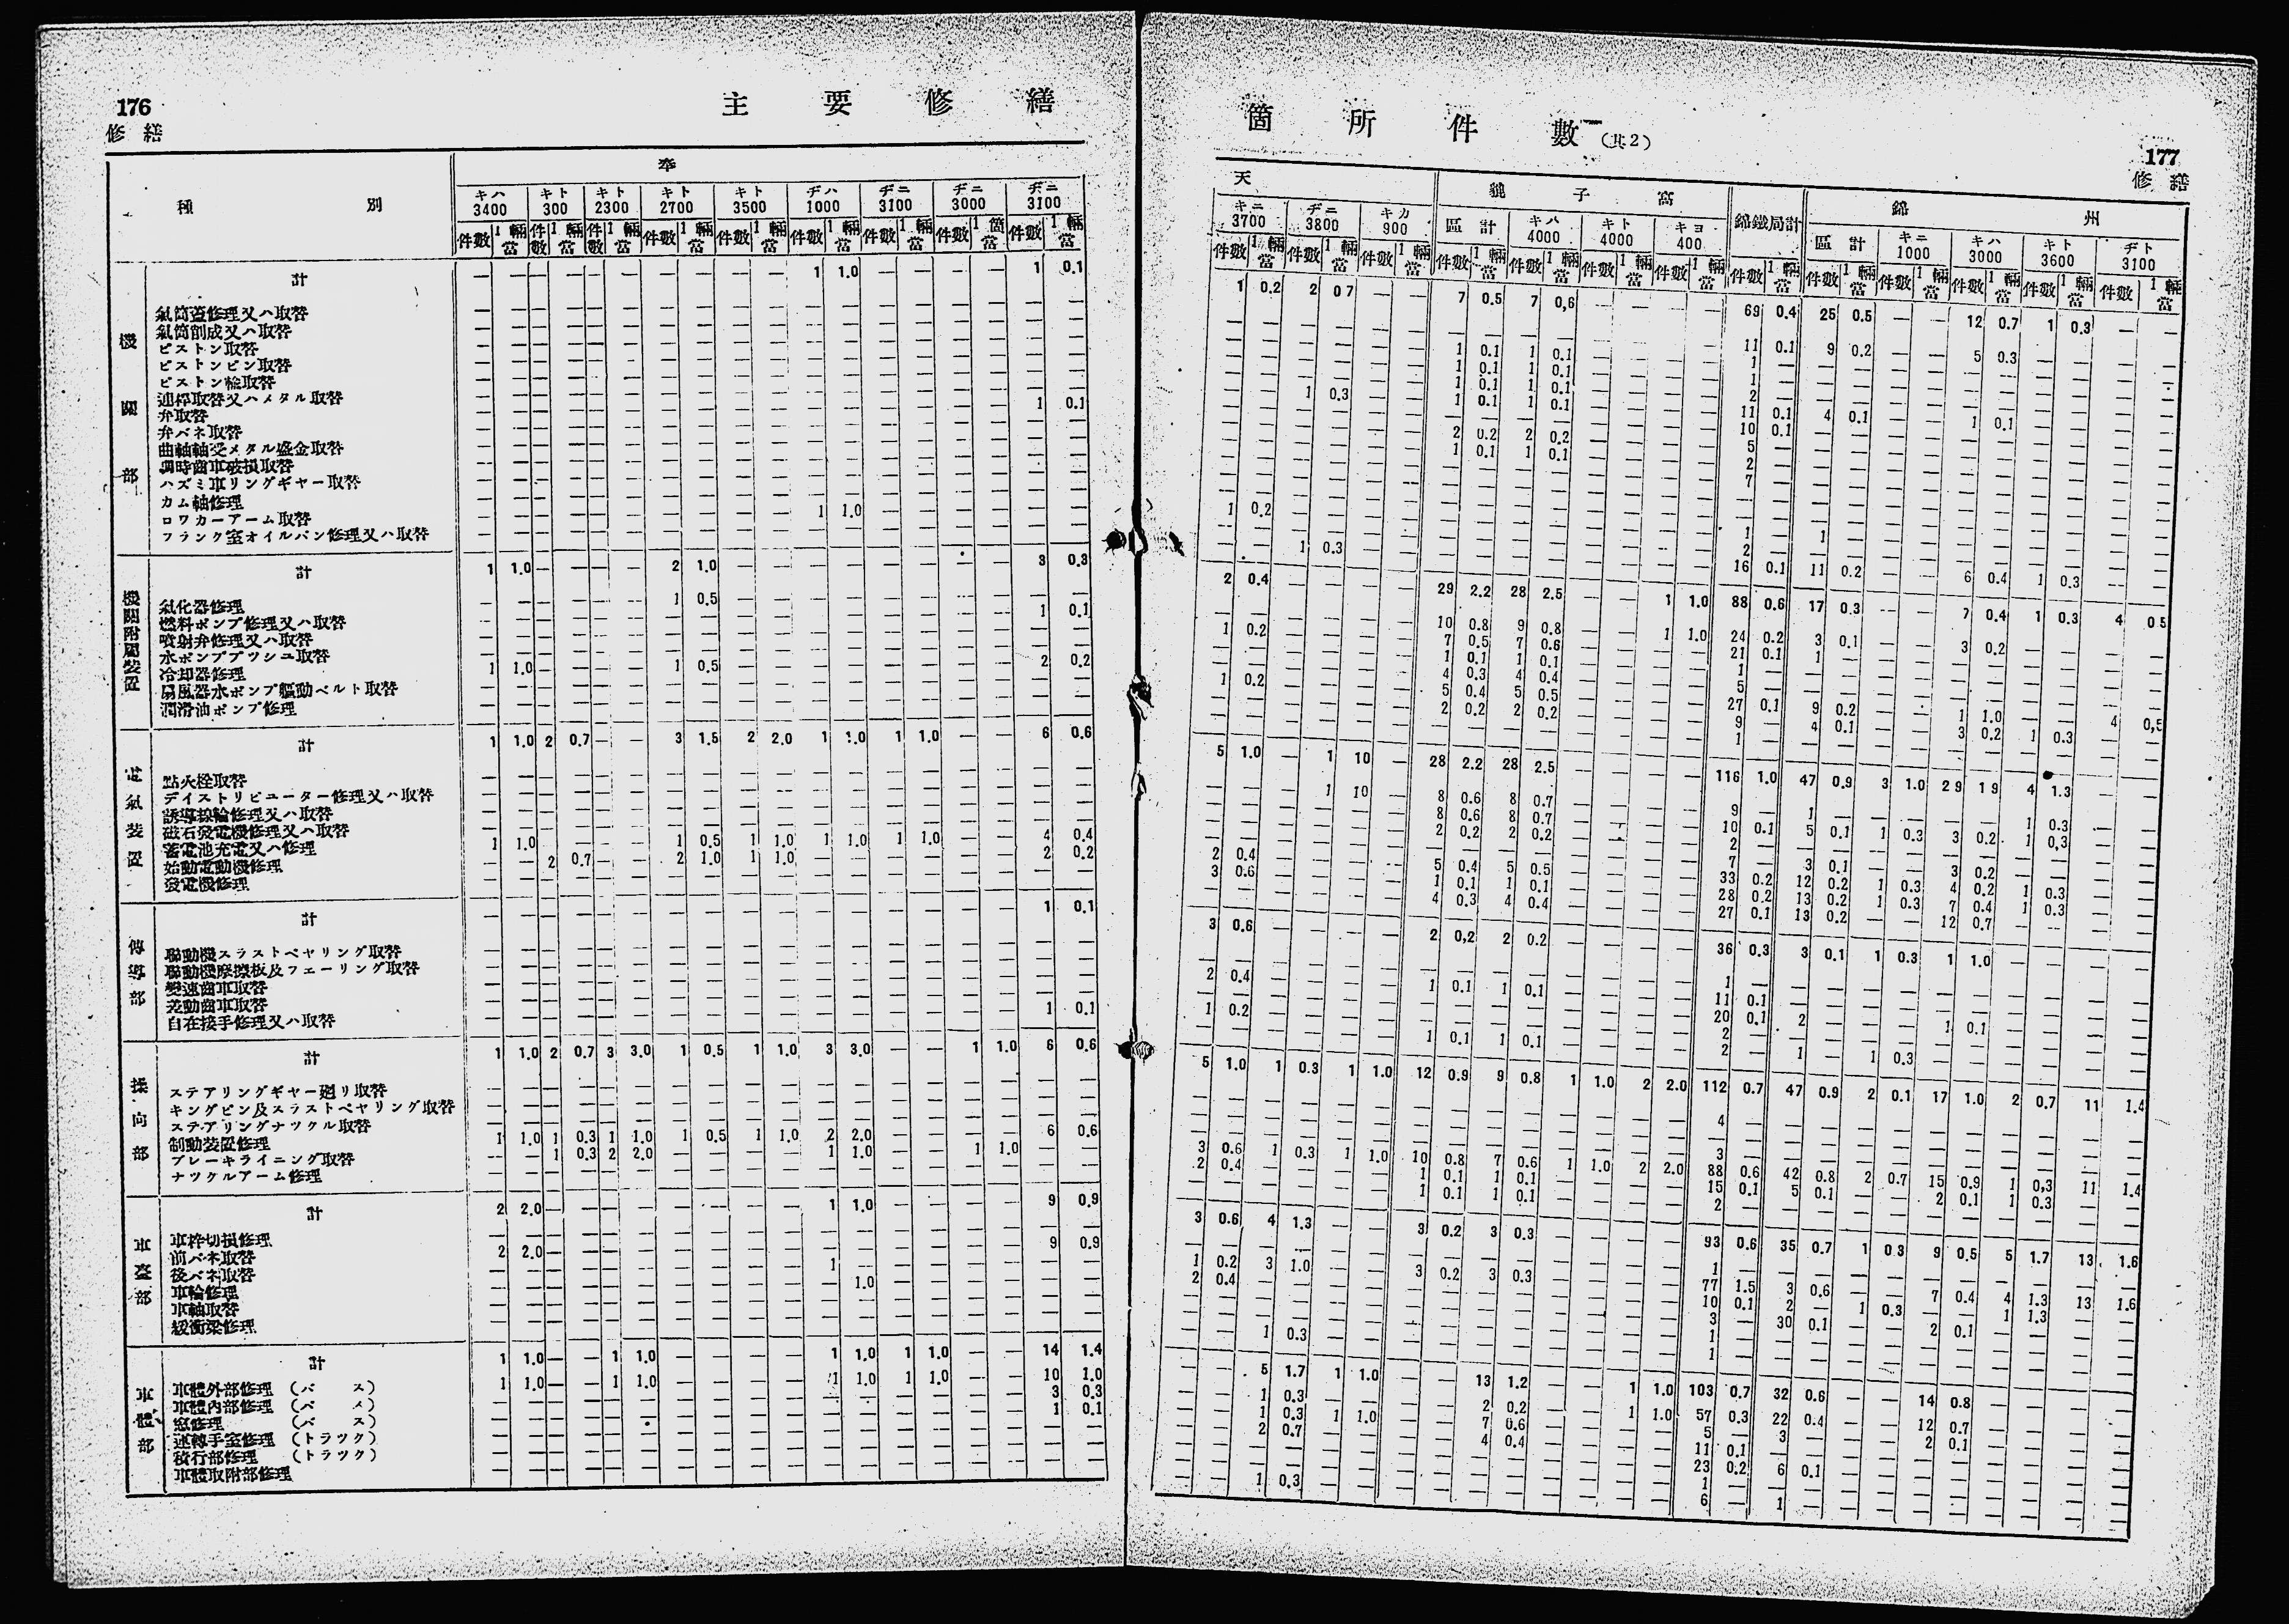 176
修繕
主要修繕
種別
奉
キハ 3400 キト 300 キト 2300 キト 2700 キト 3500 ヂハ 1000 ヂニ 3100 ヂニ 3000 ヂニ 3100
件數 1輛當 件數 1輛當 件數 1輛當 件數 1輛當 件數 1輛當 件數 1輛當 件數 1輛當 件數 1箇當 件數 1輛當
機關部
計 1 1.0 1 0.1
氣筒蓋修理又ハ取替
氣筒削成又ハ取替
ピストン取替
ピストンピン取替
ピストン輪取替
連桿取替又ハメタル取替
弁取替 1 0.1
弁バネ取替
曲軸軸受メタル盛金取替
調時齒車破損取替
ハズミ車リングギヤー取替
カム軸修理
ロワカーアーム取替 1 1.0
フランク室オイルパン修理又ハ取替
機關附屬裝置
計 1 1.0 2 1.0 3 0.3
氣化器修理 1 0.5
燃料ポンプ修理又ハ取替 1 0.1
噴射弁修理又ハ取替
水ポンプブツシユ取替
冷却器修理 1 1.0 1 0.5 2 0.2
扇風器水ポンプ驅動ベルト取替
潤滑油ポンプ修理
電氣裝置
計 1 1.0 2 0.7 3 1.5 2 2.0 1 1.0 1 1.0 6 0.6
點火栓取替
デイストリビユーター修理又ハ取替
誘導線輪修理又ハ取替
磁石發電機修理又ハ取替
蓄電池充電又ハ修理 1 1.0 1 0.5 1 1.0 1 1.0 1 1.0 4 0.4
始動電動機修理 2 0.7 2 1.0 1 1.0 2 0.2
發電機修理
傳導部
計 1 0.1
聯動機スラストベヤリング取替
聯動機摩擦板及フエーリング取替
變速齒車取替
差動齒車取替
自在接手修理又ハ取替 1 0.1
操向部
計 1 1.0 2 0.7 3 3.0 1 0.5 1 1.0 3 3.0 1 1.0 6 0.6
ステアリングギヤー廻リ取替
キングピン及スラストベヤリング取替
ステアリングナツクル取替
制動裝置修理 1 1.0 1 0.3 1 1.0 1 0.5 1 1.0 2 2.0 6 0.6
ブレーキライニング取替 1 0.3 2 2.0 1 1.0 1 1.0
ナツクルアーム修理
車臺部
計 2 2.0 1 1.0 9 0.9
車枠切損修理
前バネ取替 2 2.0 9 0.9
後バネ取替 1
車輪修理 1.0
車軸取替
緩衝梁修理
車體部
計 1 1.0 1 1.0 1 1.0 1 1.0 14 1.4
車體外部修理 (バス) 1 1.0 1 1.0 1 1.0 1 1.0 10 1.0
車體內部修理 (バス) 3 0.3
窓修理 (バス) 1 0.1
運轉手室修理 (トラツク)
積行部修理 (トラツク)
車體取附部修理
箇所件數 (其2)
177
修繕
天 貔子窩 錦鐵局計 錦州
キニ 3700 ヂニ 3800 キカ 900 區計 キハ 4000 キト 4000 キヨ 400 區計 キニ 1000 キハ 3000 キト 3600 ヂト 3100
件數 1輛當 件數 1輛當 件數 1輛當 件數 1輛當 件數 1輛當 件數 1輛當 件數 1輛當 件數 1輛當 件數 1輛當 件數 1輛當 件數 1輛當 件數 1輛當 件數 1輛當
1 0.2 2 0 7 — — 7 0.5 7 0,6 — — — — 69 0.4 25 0.5 — — 12 0.7 1 0.3 — —
1 0.1 1 0.1 11 0.1 9 0.2 5 0.3
1 0.1 1 0.1 1
1 0.1 1 0.1 1
1 0.3 1 0.1 1 0.1 2
11 0.1 4 0.1 1 0.1
2 0.2 2 0.2 10 0.1
1 0.1 1 0.1 5
2
7
1 0.2
1 1
1 0.3 2
16 0.1 11 0.2 6 0.4 1 0.3
2 0.4 29 2.2 28 2.5 1 1.0 88 0.6 17 0.3 7 0.4 1 0.3 4 0 5
10 0.8 9 0.8 1 1.0 24 0.2 3 0.1 3 0.2
1 0.2 7 0.5 7 0.6 21 0.1 1
1 0.1 1 0.1 1
4 0.3 4 0.4 5
1 0.2 5 0.4 5 0.5 27 0.1 9 0.2 1 1.0 4 0,5
2 0.2 2 0.2 9 4 0.1 3 0.2 1 0.3
1
5 1.0 1 10 28 2.2 28 2.5 116 1.0 47 0.9 3 1.0 2 9 1 9 4 1.3
1 10 8 0.6 8 0.7 9 1 1 0.3
8 0.6 8 0.7 10 0.1 5 0.1 1 0.3 3 0.2 1 0,3
2 0.2 2 0.2 2
7 3 0.1 3 0.2
2 0.4 5 0.4 5 0.5 33 0.2 12 0.2 1 0.3 4 0.2 1 0.3
3 0.6 1 0.1 1 0.1 28 0.2 13 0.2 1 0.3 7 0.4 1 0.3
4 0.3 4 0.4 27 0.1 13 0.2 12 0.7
3 0.6 2 0,2 2 0.2 36 0.3 3 0.1 1 0.3 1 1.0
1
2 0.4 1 0.1 1 0.1 11 0.1
20 0.1 2 1 0.1
1 0.2 2
1 0.1 1 0.1 2 1 1 0.3
5 1.0 1 0.3 1 1.0 12 0.9 9 0.8 1 1.0 2 2.0 112 0.7 47 0.9 2 0.1 17 1.0 2 0.7 11 1.4
4
3
3 0.6 1 0.3 1 1.0 10 0.8 7 0.6 1 1.0 2 2.0 88 0.6 42 0.8 2 0.7 15 0.9 1 0,3 11 1.4
2 0.4 1 0.1 1 0.1 15 0.1 5 0.1 2 0.1 1 0.3
1 0.1 1 0.1 2
3 0.6 4 1.3 3 0.2 3 0.3 93 0.6 35 0.7 1 0 3 9 0.5 5 1.7 13 1.6
1
1 0.2 3 1.0 3 0.2 3 0.3 77 1.5 3 0.6 7 0.4 4 1.3 13 1.6
2 0.4 10 0.1 2 1 0.3 1 1.3
3 30 0.1 2 0.1
1
1 0.3 1
5 1.7 1 1.0 13 1.2 1 1.0 103 0.7 32 0.6 14 0.8
1 0.3 2 0.2 1 1.0 57 0.3 22 0.4 12 0.7
1 0.3 1 1.0 7 0.6 5 3 2 0.1
2 0.7 4 0.4 11 0.1
23 0.2 6 0.1
1
1 0.3 6 1